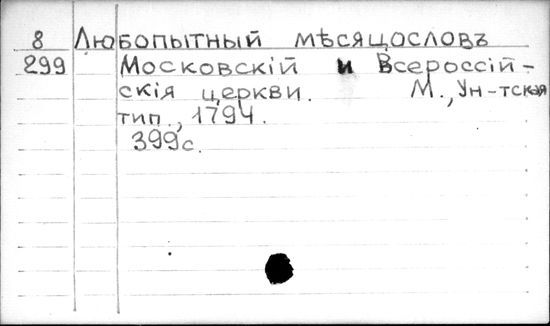 8 Любопытный мѣсяцословъ
299 Московскій и Всероссій-
скія церкви. М., Ун-тская
тип., 1794.
399с.